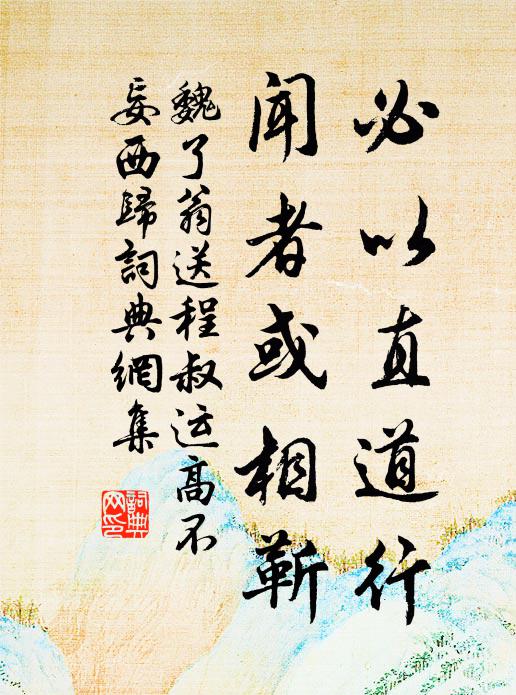 必以直道行
闻者或相靳
魏了翁送程叔运高不
妄西歸詞典網集
詞典
网印